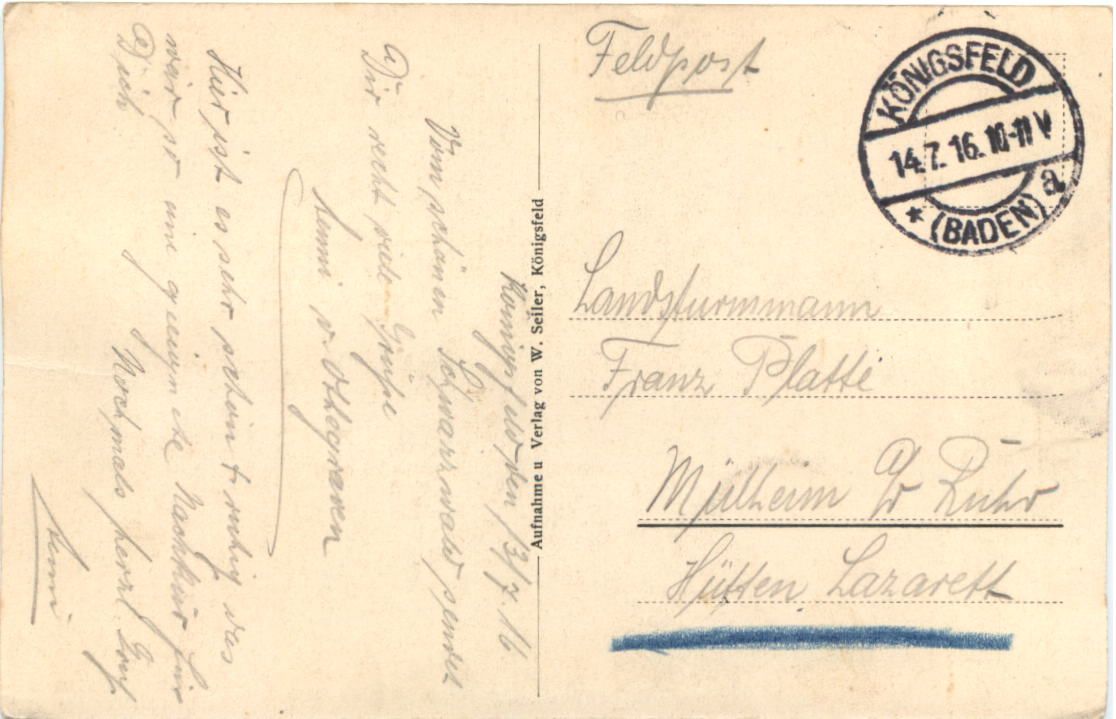 Feldpost
KÖNIGSFELD
14.7.16.10-11 V
* (BADEN) a
Landsturmmann
Franz Platte
Mülheim a/d Ruhr
Hütten Lazarett
Aufnahme u Verlag von W. Seiler, Königsfeld
Königsfeld, den 13/7.16
Vom schönen Schwarzwald sendet
Dir recht viele Grüße
Änni v.
Hier ist es sehr schön & ruhig was
wär so eine geeignete Nachkur für
Dich Nochmals herzl. Gruß
Änni